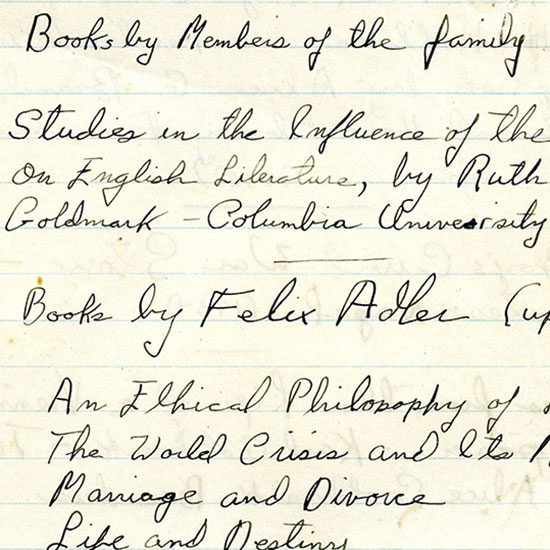 Books by Members of the family
Studies in the Influence of the
on English Literature, by Ruth
Goldmark - Columbia University
Books by Felix Adler (up
An Ethical Philosophy of
The World Crisis and Its
Marriage and Divorce
Life and Destiny